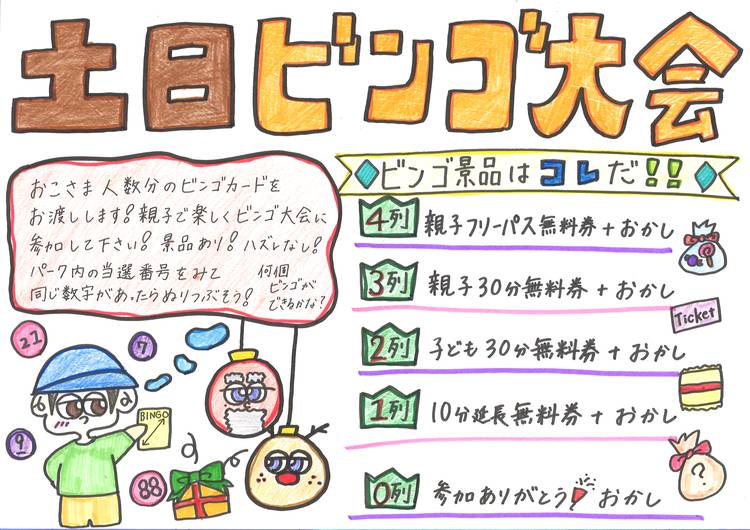 土日ビンゴ大会
おこさま人数分のビンゴカードを
お渡しします!親子で楽しくビンゴ大会に
参加して下さい!景品あり!ハズレなし!
パーク内の当選番号をみて
同じ数字があったらぬりつぶそう!
何個
ビンゴが
できるかな?
ビンゴ景品はコレだ!!
4列 親子フリーパス無料券+おかし
3列 親子30分無料券+おかし
Ticket
2列 子ども30分無料券+おかし
1列 10分延長無料券+おかし
?
0列 参加ありがとう おかし
21
7
BINGO
9
88